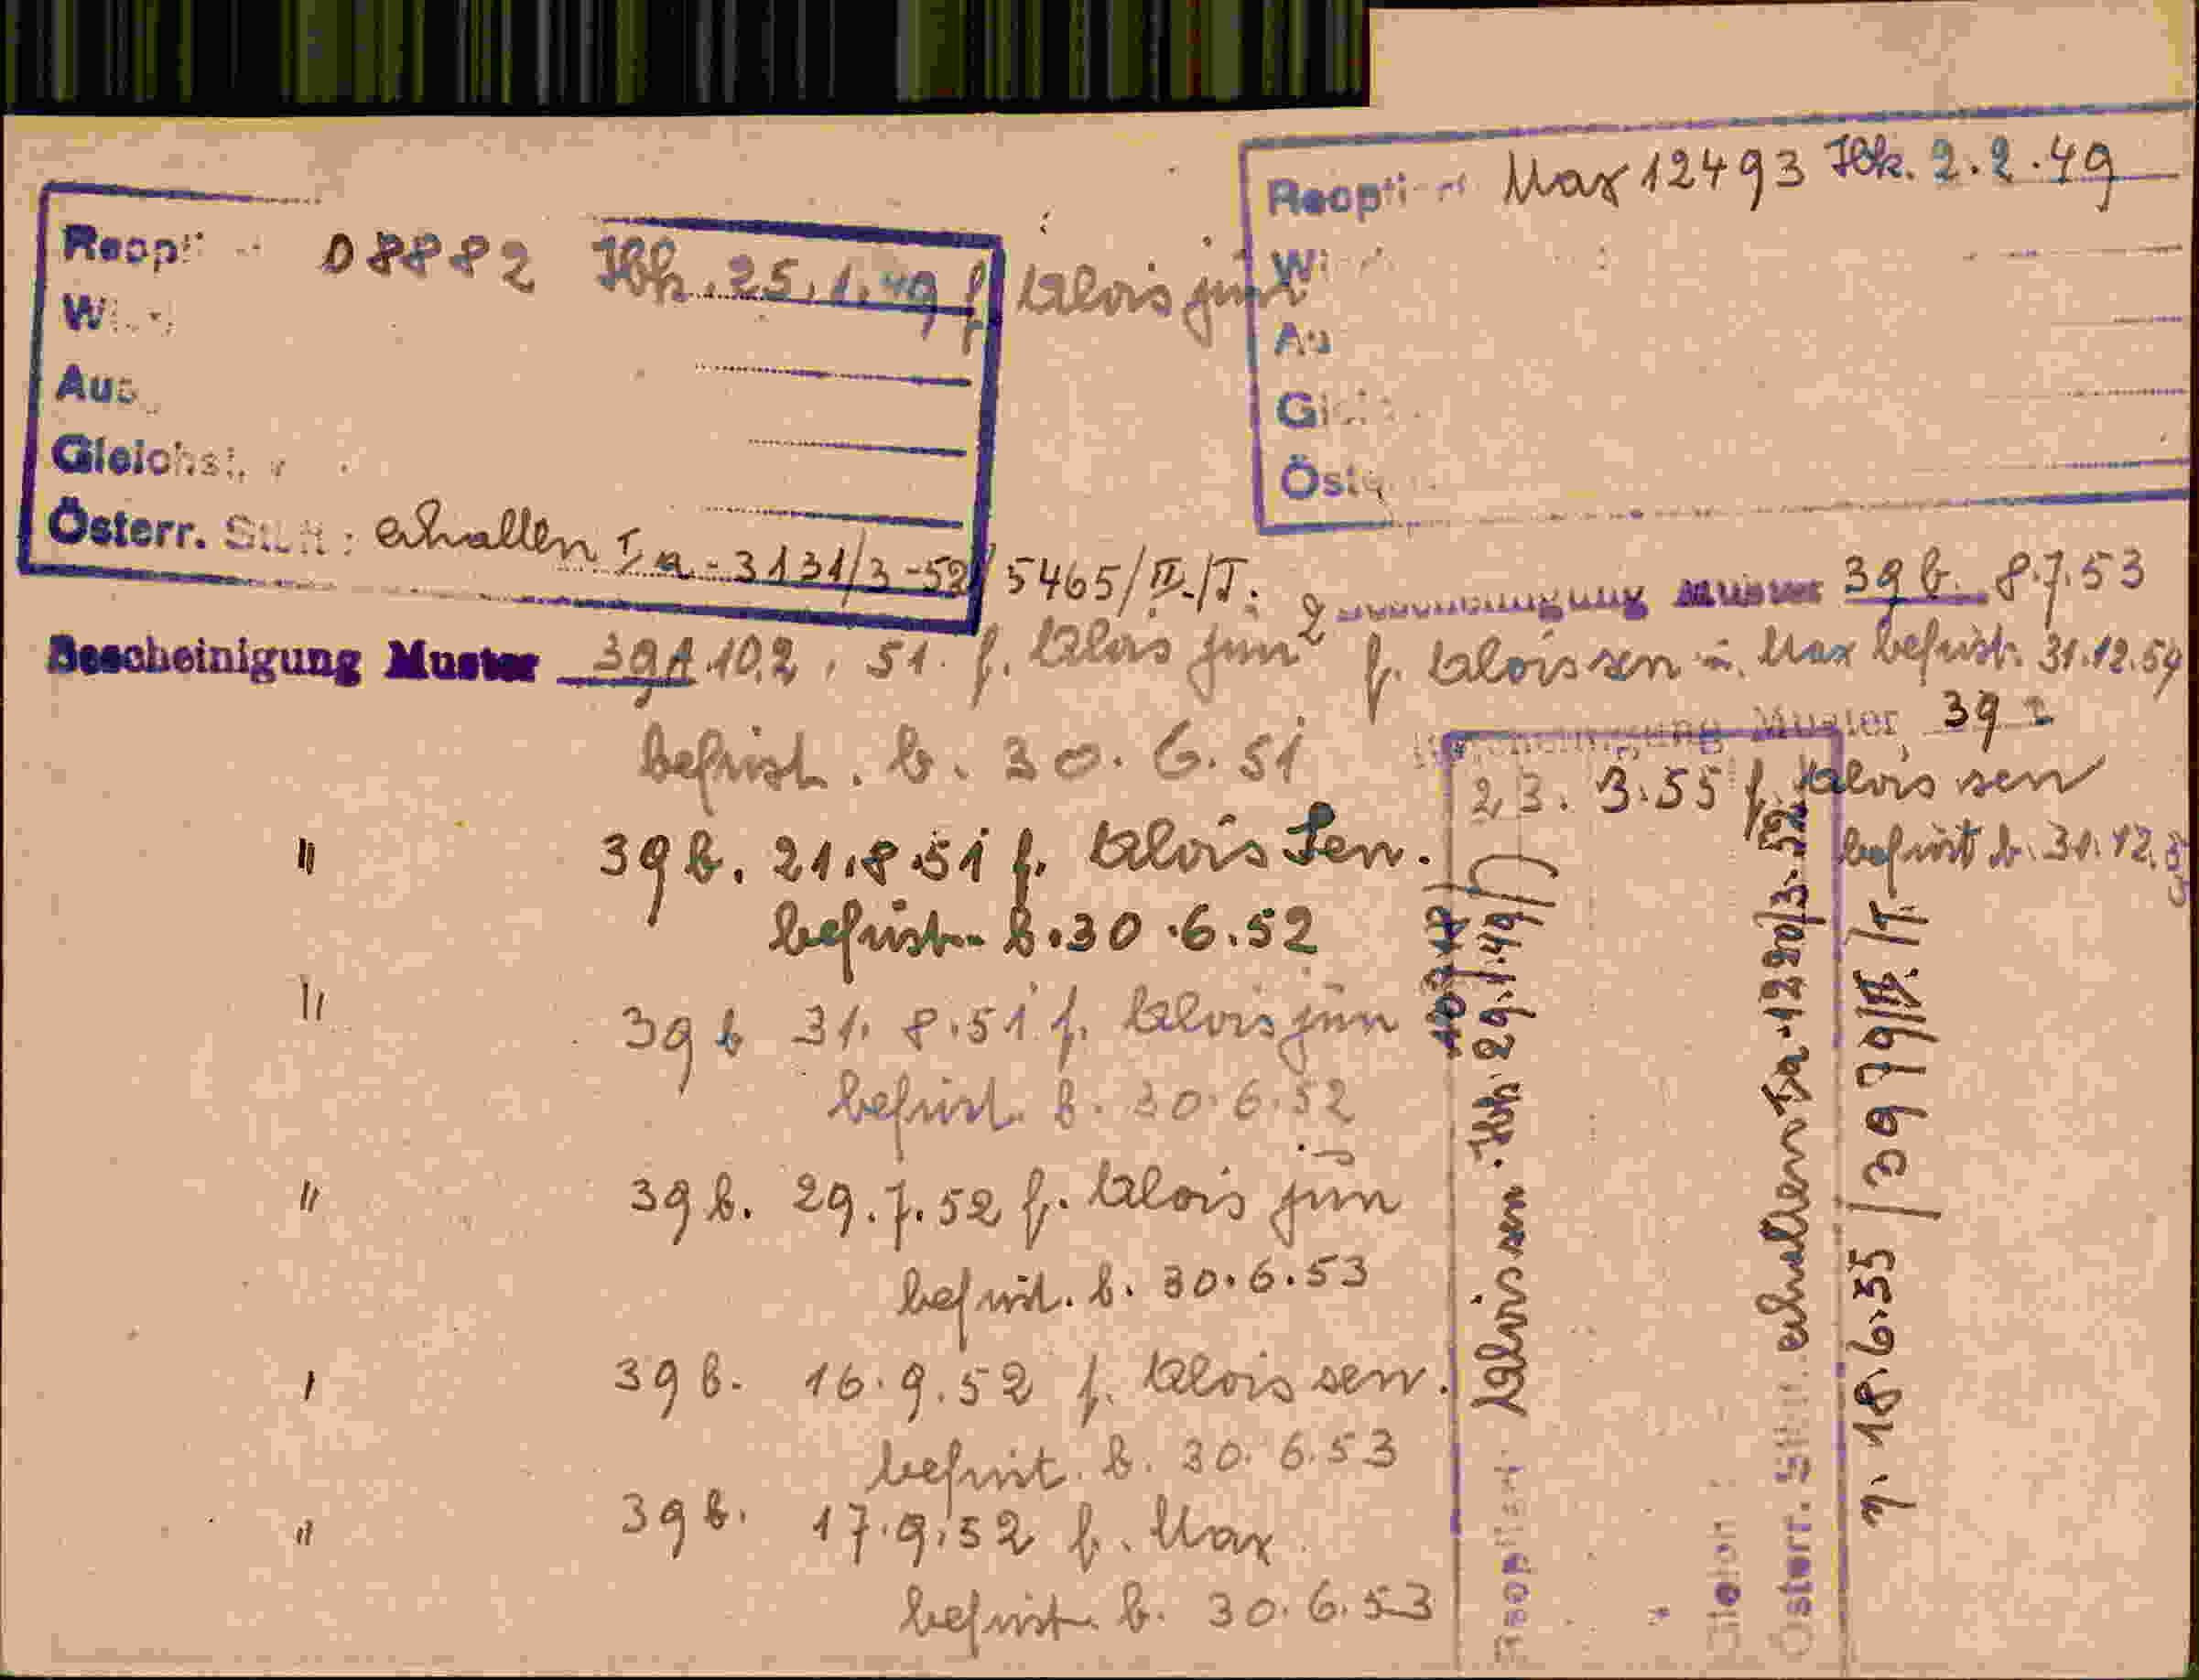 08882 Ibk. 25.1.49 f Alois jun
Aus
Gleichst.
Österr. Stb. : erhalten Ia-3131/3-52/5465/IV/T.
Max 12493 Ibk. 2.2.49
Bescheinigung Muster 39A 10.2.51. f. Alois jun
befrist. b. 30.6.51
" 39b. 21.8.51 f. Alois Sen.
befrist. b. 30.6.52
" 39b 31.8.51 f. Alois jun
befrist. b. 30.6.52
" 39b. 29.7.52 f. Alois jun
befrist. b. 30.6.53
" 39b. 16.9.52 f. Alois sen.
befrist. b. 30.6.53
" 39b. 17.9.52 f. Max
befrist. b. 30.6.53
Bescheinigung Muster 39b. 8.7.53
f. Alois sen u. Max befrist. 31.12.54
Bescheinigung Muster 39
23.3.55 f. Alois sen
befrist b. 31.12.
Alois sen. Ibk. 29.1.49
Österr. Stb. erhalten Ia-1220/3-52
v. 18.6.55 / 3979/IV./T.